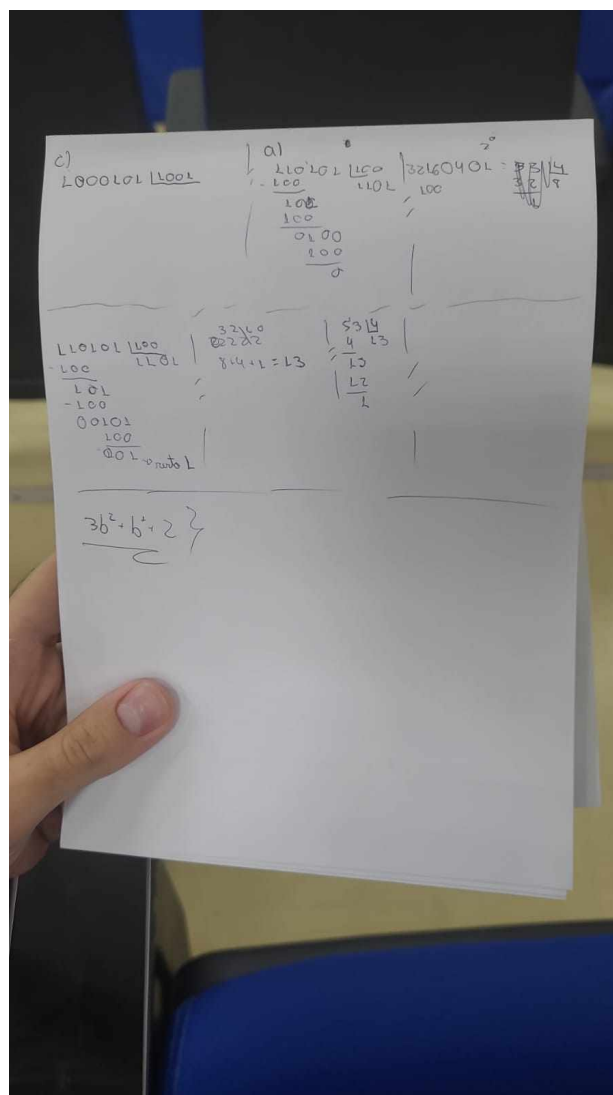 c)
1000101 1001
a)
110101 100
-100 1101
100
0100
100
0
32160401 =
100
110101 100
-100 1101
101
-100
00101
100
001 → resto 1
3210
2222
8+4+1=13
53 4
4 13
13
12
1
3b²+b¹+2